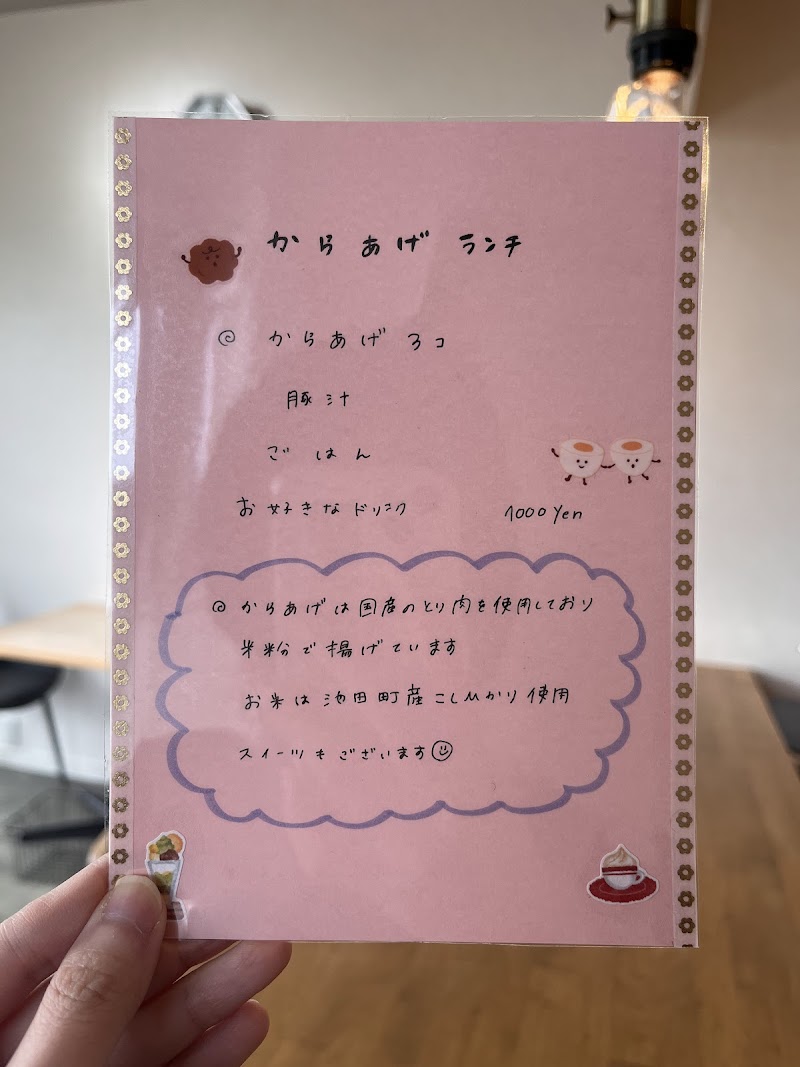 からあげ ランチ
◎ からあげ 3コ
豚汁
ごはん
お好きなドリンク 1000 Yen
◎ からあげは国産のとり肉を使用しており
米粉で揚げています
お米は池田町産こしひかり使用
スイーツもございます☺